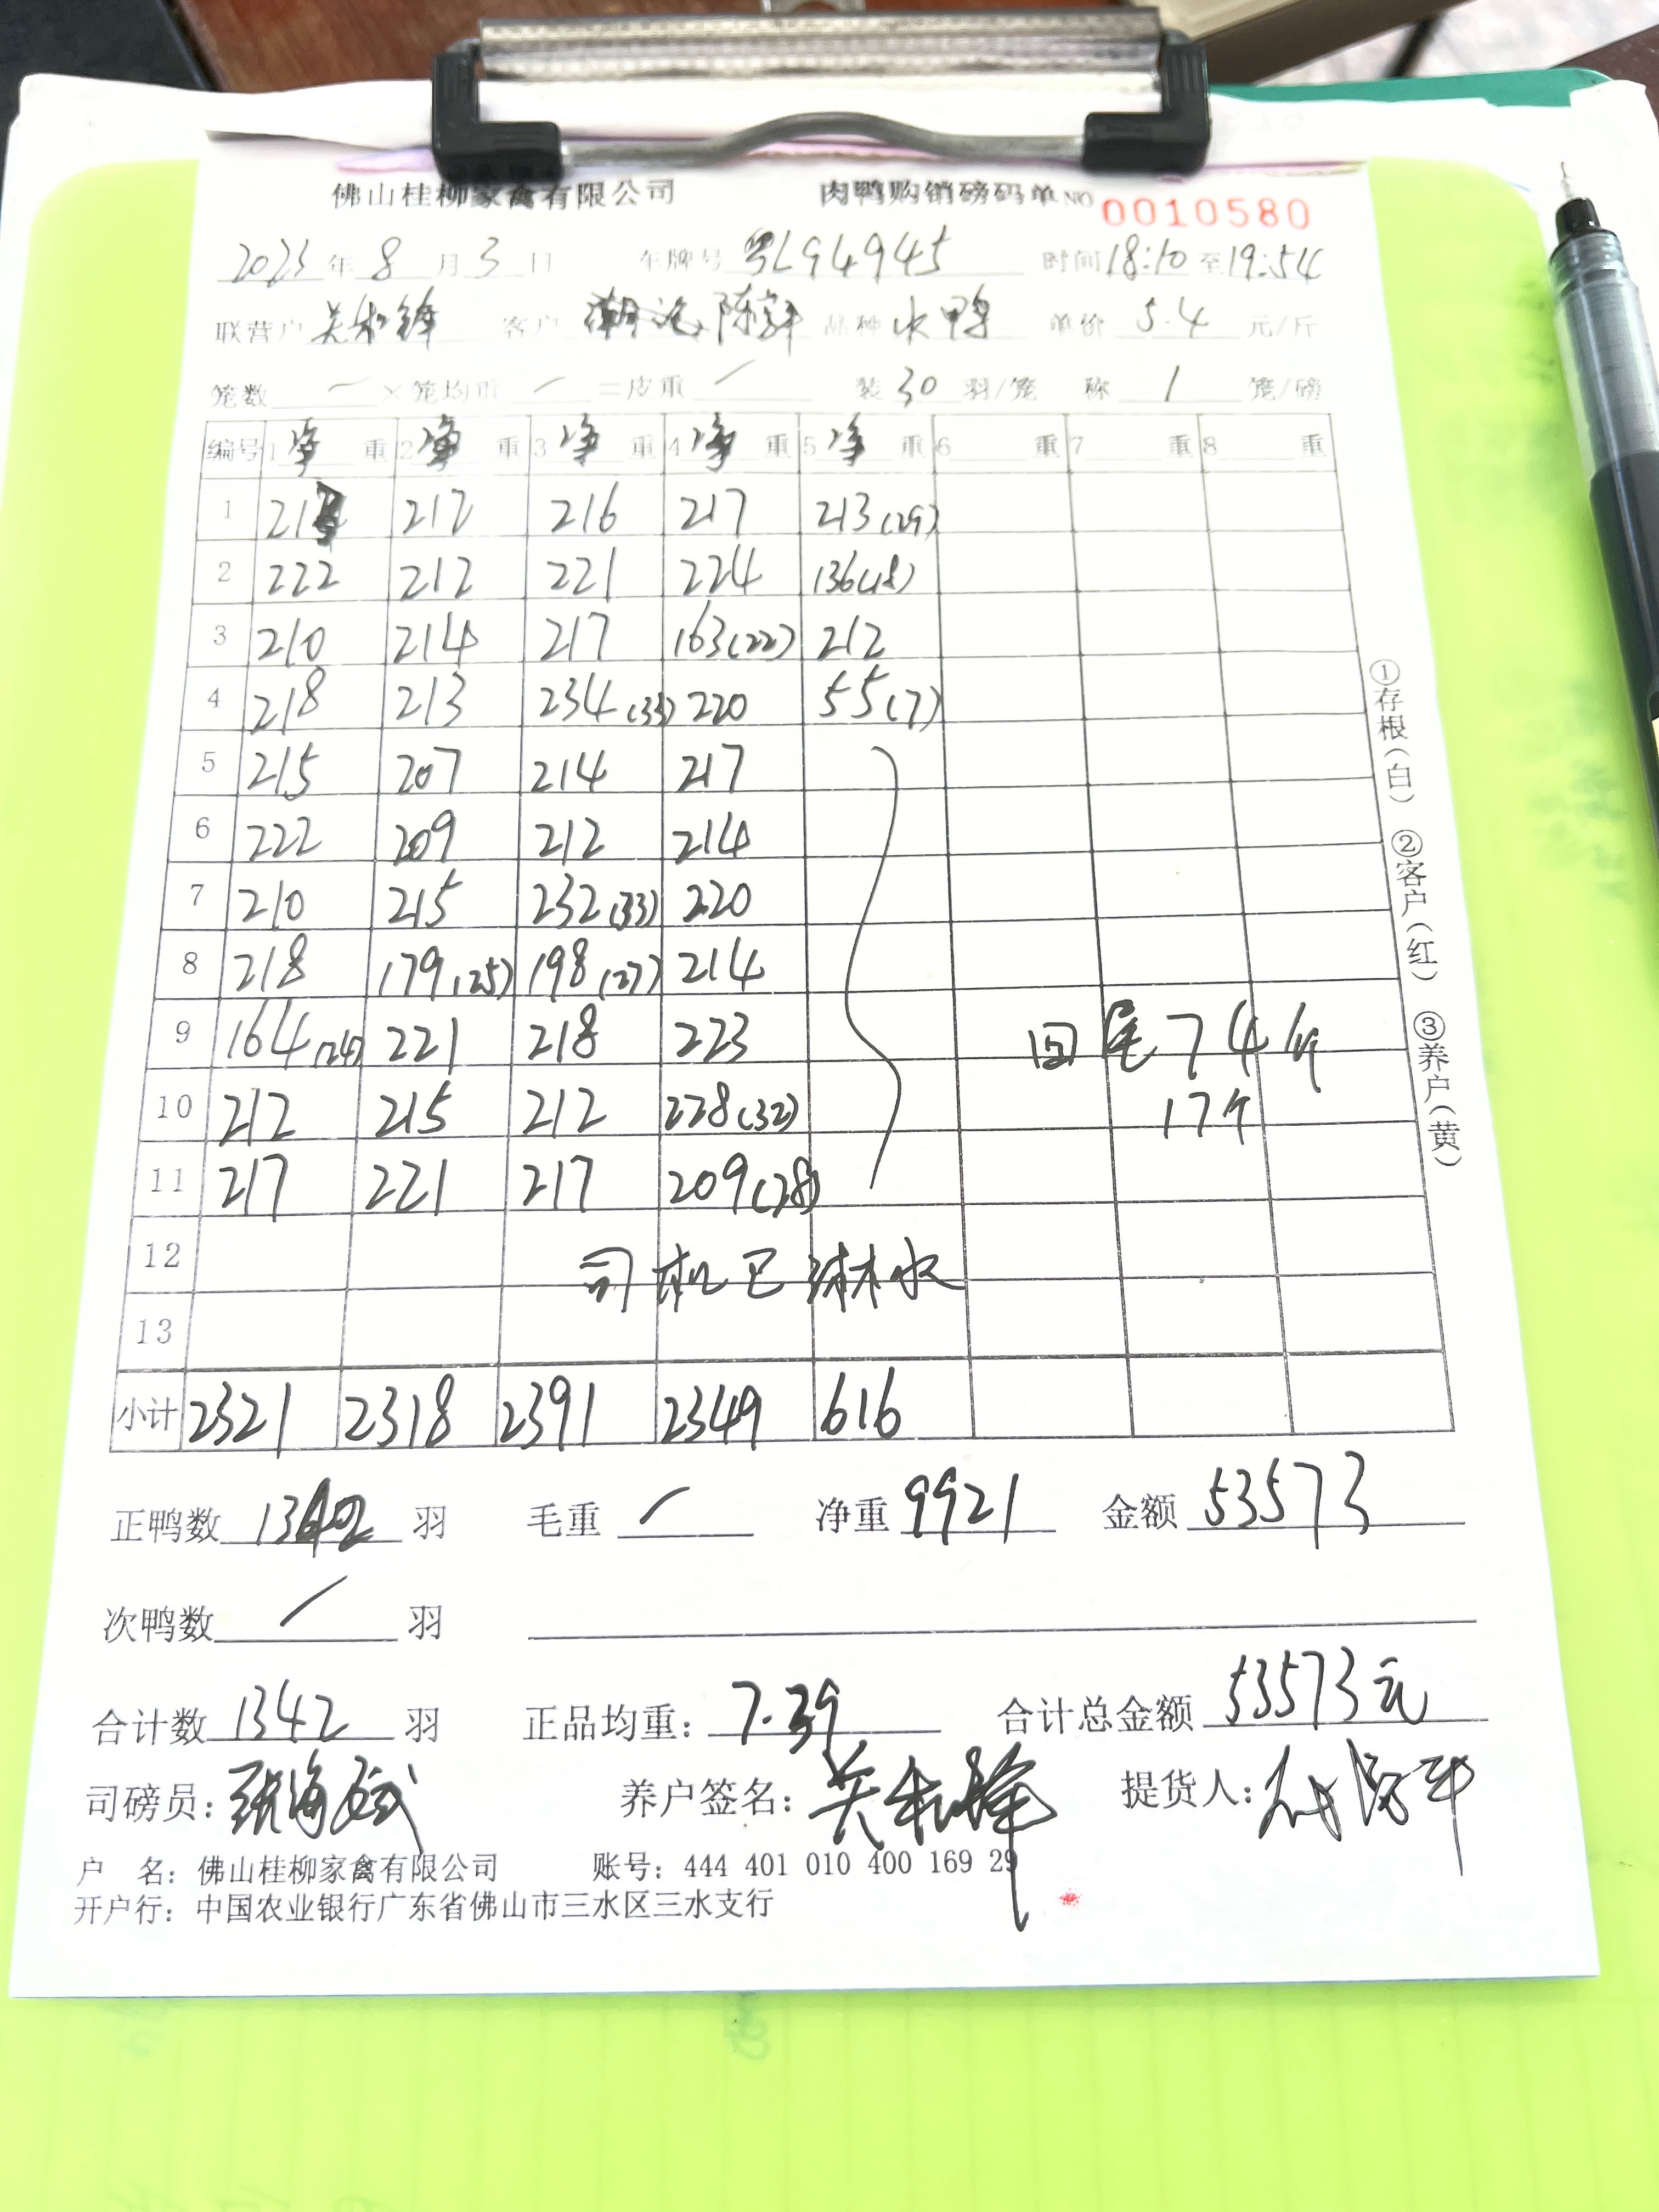 佛山桂柳家禽有限公司 肉鸭购销磅码单 NO 0010580
2023 年 8 月 3 日 车牌号 粤L94945 时间 18:10 至 19:54
联营户 关松锋 客户 陈 品种 水鸭 单价 5.4 元/斤
笼数 × 笼均重 = 皮重 装 30 羽/笼 称 1 笼/磅
编号 1 净 重 2 净 重 3 净 重 4 净 重 5 净 重 6 重 7 重 8 重
1 212 216 217 213(29)
2 222 212 221 224 136(18)
3 210 214 217 163(22) 212
4 218 213 234(33) 220 55(7)
5 215 207 214 217
6 222 209 212 214
7 210 215 232(33) 220
8 218 179(25) 198(27) 214
9 164(24) 221 218 223 回尾74斤
10 212 215 212 228(32) 17个
11 217 221 217 209(28)
12 司机已淋水
13
小计 2321 2318 2391 2349 616
①存根(白) ②客户(红) ③养户(黄)
正鸭数 羽 毛重 / 净重 9921 金额 53573
次鸭数 / 羽
合计数 1342 羽 正品均重: 7.39 合计总金额 53573元
司磅员: 张海 养户签名: 关松锋 提货人:
户 名: 佛山桂柳家禽有限公司 账号: 444 401 010 400 169 29
开户行: 中国农业银行广东省佛山市三水区三水支行